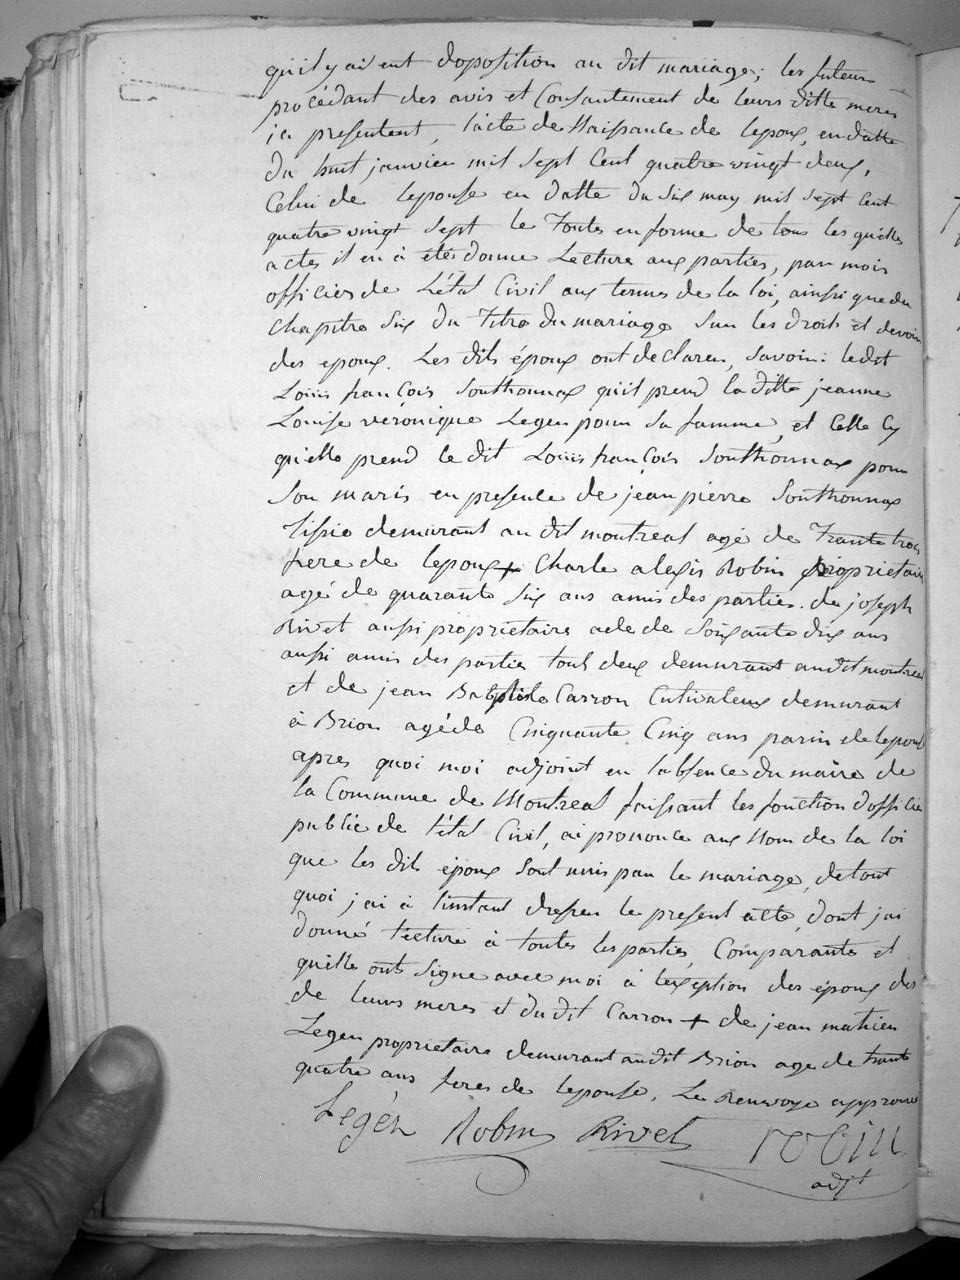 qu'il y ai ent d'oposition au dit mariage; les futeurs
procédant des avis et Consantement de leurs ditte meres
ici presentent, l'acte de Naissance de lepoux, en datte
du huit janvier mil sept Cent quatre vingt deux,
Celui de lepouse en datte du six may mil sept cent
quatre vingt sept le Toutes en forme de tous les quelles
actes il en à été donne Lecture aux parties, par mois
officier de L'état Civil aux termes de la loi, ainsi que du
Chapitre Six du Titre du mariage Sur les droits et devoir
des epoux. Les dits époux ont declarer, Savoir: ledit
Louis françois Southonnax qu'il prend la ditte jeanne
Louise véronique Leger pour Sa famme, et Celle Cy
qu'elle prend le dit Louis françois Southonnax pour
Son maris en presence de jean pierre Southonnax
Tissié demurant au dit montreal agé de Trante trois
frere de lepoux + Charle alexis Robin propriétaire
agé de quarante six ans amis des parties. de joseph
Rivet aussi propriétaire ade de Soixante dix ans
aussi amis des partier tout deux demurant audit montreal
et de jean Baptiste Carron Cutivateux demurant
à Brion agé de Cinquante Cinq ans parin de lepoux
apres quoi moi adjoint en l'absence du maire de
la Commune de Montreal faissant les fonction d'officier
public de l'état Civil, ai prononce aux Nom de la loi
que les dits époux Sont unis par le mariage, de tout
quoi j'ai à l'instant dresser le present acte, dont j'ai
donné lecture à toutes les parties, Comparante et
qu'elle ont Signe avec moi à l'exseption des époux des
de leurs meres et du dit Carron + de jean mathieu
Leger propriétaire demurant audit Brion age de trante
quatre ans freres de lepouse. Le Renvoye approuve
Legér Robin Rivet robin
adjt